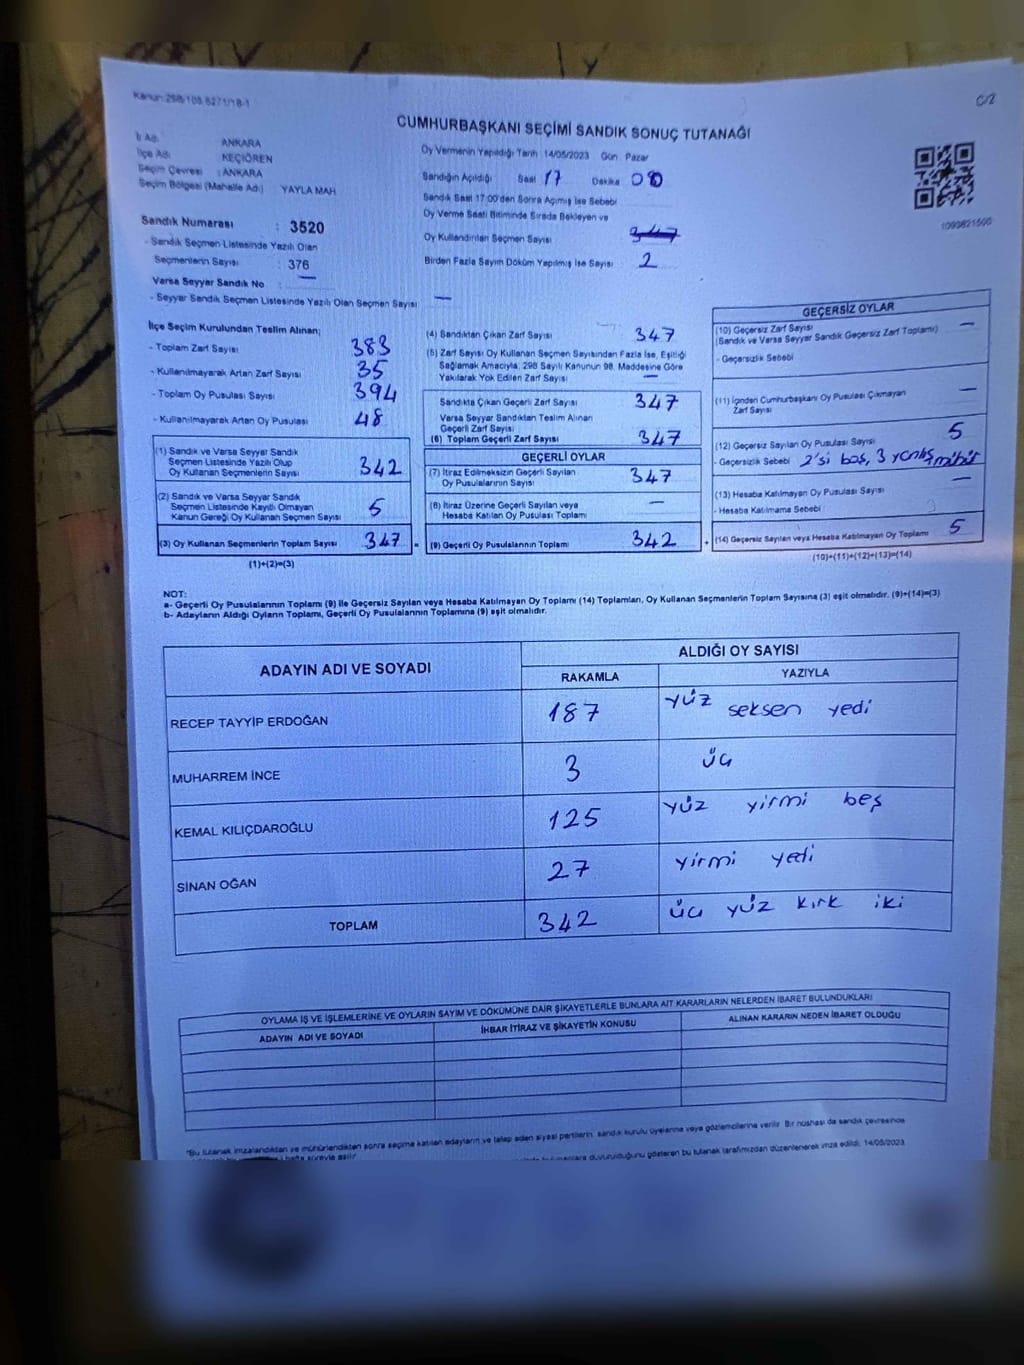 Kanun:298/108,6271/18-1
C/2
CUMHURBAŞKANI SEÇİMİ SANDIK SONUÇ TUTANAĞI
İl Adı : ANKARA
İlçe Adı : KEÇİÖREN
Seçim Çevresi : ANKARA
Seçim Bölgesi (Mahalle Adı) : YAYLA MAH
Sandık Numarası : 3520
- Sandık Seçmen Listesinde Yazılı Olan
Seçmenlerin Sayısı : 376
Varsa Seyyar Sandık No —
- Seyyar Sandık Seçmen Listesinde Yazılı Olan Seçmen Sayısı —
Oy Vermenin Yapıldığı Tarih 14/05/2023 Gün Pazar
Sandığın Açıldığı Saat 17 Dakika 08
Sandık Saat 17:00'den Sonra Açılmış İse Sebebi
Oy Verme Saati Bitiminde Sırada Bekleyen ve
Oy Kullandırılan Seçmen Sayısı 347
Birden Fazla Sayım Döküm Yapılmış İse Sayısı 2
1093821500
İlçe Seçim Kurulundan Teslim Alınan;
- Toplam Zarf Sayısı 383
- Kullanılmayarak Artan Zarf Sayısı 35
- Toplam Oy Pusulası Sayısı 394
- Kullanılmayarak Artan Oy Pusulası 48
(1) Sandık ve Varsa Seyyar Sandık
Seçmen Listesinde Yazılı Olup
Oy Kullanan Seçmenlerin Sayısı 342
(2) Sandık ve Varsa Seyyar Sandık
Seçmen Listesinde Kayıtlı Olmayan
Kanun Gereği Oy Kullanan Seçmen Sayısı 5
(3) Oy Kullanan Seçmenlerin Toplam Sayısı 347 =
(1)+(2)=(3)
(4) Sandıktan Çıkan Zarf Sayısı 347
(5) Zarf Sayısı Oy Kullanan Seçmen Sayısından Fazla İse, Eşitliği
Sağlamak Amacıyla, 298 Sayılı Kanunun 98. Maddesine Göre
Yakılarak Yok Edilen Zarf Sayısı —
Sandıkta Çıkan Geçerli Zarf Sayısı 347
Varsa Seyyar Sandıktan Teslim Alınan
Geçerli Zarf Sayısı
(6) Toplam Geçerli Zarf Sayısı 347
GEÇERLİ OYLAR
(7) İtiraz Edilmeksizin Geçerli Sayılan
Oy Pusulalarının Sayısı 347
(8) İtiraz Üzerine Geçerli Sayılan veya
Hesaba Katılan Oy Pusulası Toplamı —
(9) Geçerli Oy Pusulalarının Toplamı 342 +
GEÇERSİZ OYLAR
(10) Geçersiz Zarf Sayısı
(Sandık ve Varsa Seyyar Sandık Geçersiz Zarf Toplamı) —
- Geçersizlik Sebebi
(11) İçinden Cumhurbaşkanı Oy Pusulası Çıkmayan
Zarf Sayısı —
(12) Geçersiz Sayılan Oy Pusulası Sayısı 5
- Geçersizlik Sebebi 2'si boş, 3 yanlış mühür
(13) Hesaba Katılmayan Oy Pusulası Sayısı —
- Hesaba Katılmama Sebebi
(14) Geçersiz Sayılan veya Hesaba Katılmayan Oy Toplamı 5
(10)+(11)+(12)+(13)=(14)
NOT:
a- Geçerli Oy Pusulalarının Toplamı (9) ile Geçersiz Sayılan veya Hesaba Katılmayan Oy Toplamı (14) Toplamları, Oy Kullanan Seçmenlerin Toplam Sayısına (3) eşit olmalıdır. (9)+(14)=(3)
b- Adayların Aldığı Oyların Toplamı, Geçerli Oy Pusulalarının Toplamına (9) eşit olmalıdır.
ADAYIN ADI VE SOYADI
ALDIĞI OY SAYISI
RAKAMLA YAZIYLA
RECEP TAYYİP ERDOĞAN 187 yüz seksen yedi
MUHARREM İNCE 3 üç
KEMAL KILIÇDAROĞLU 125 yüz yirmi beş
SİNAN OĞAN 27 yirmi yedi
TOPLAM 342 üç yüz kırk iki
OYLAMA İŞ VE İŞLEMLERİNE VE OYLARIN SAYIM VE DÖKÜMÜNE DAİR ŞİKAYETLERLE BUNLARA AİT KARARLARIN NELERDEN İBARET BULUNDUKLARI
ADAYIN ADI VE SOYADI İHBAR İTİRAZ VE ŞİKAYETİN KONUSU ALINAN KARARIN NEDEN İBARET OLDUĞU
"Bu tutanak imzalandıktan ve mühürlendikten sonra seçime katılan adayların ve talep eden siyasi partilerin, sandık kurulu üyelerine veya gözlemcilerine verilir. Bir nüshası da sandık çevresinde
hafta süreyle asılır. duyurulduğunu gösteren bu tutanak tarafımızdan düzenlenerek imza edildi. 14/05/2023